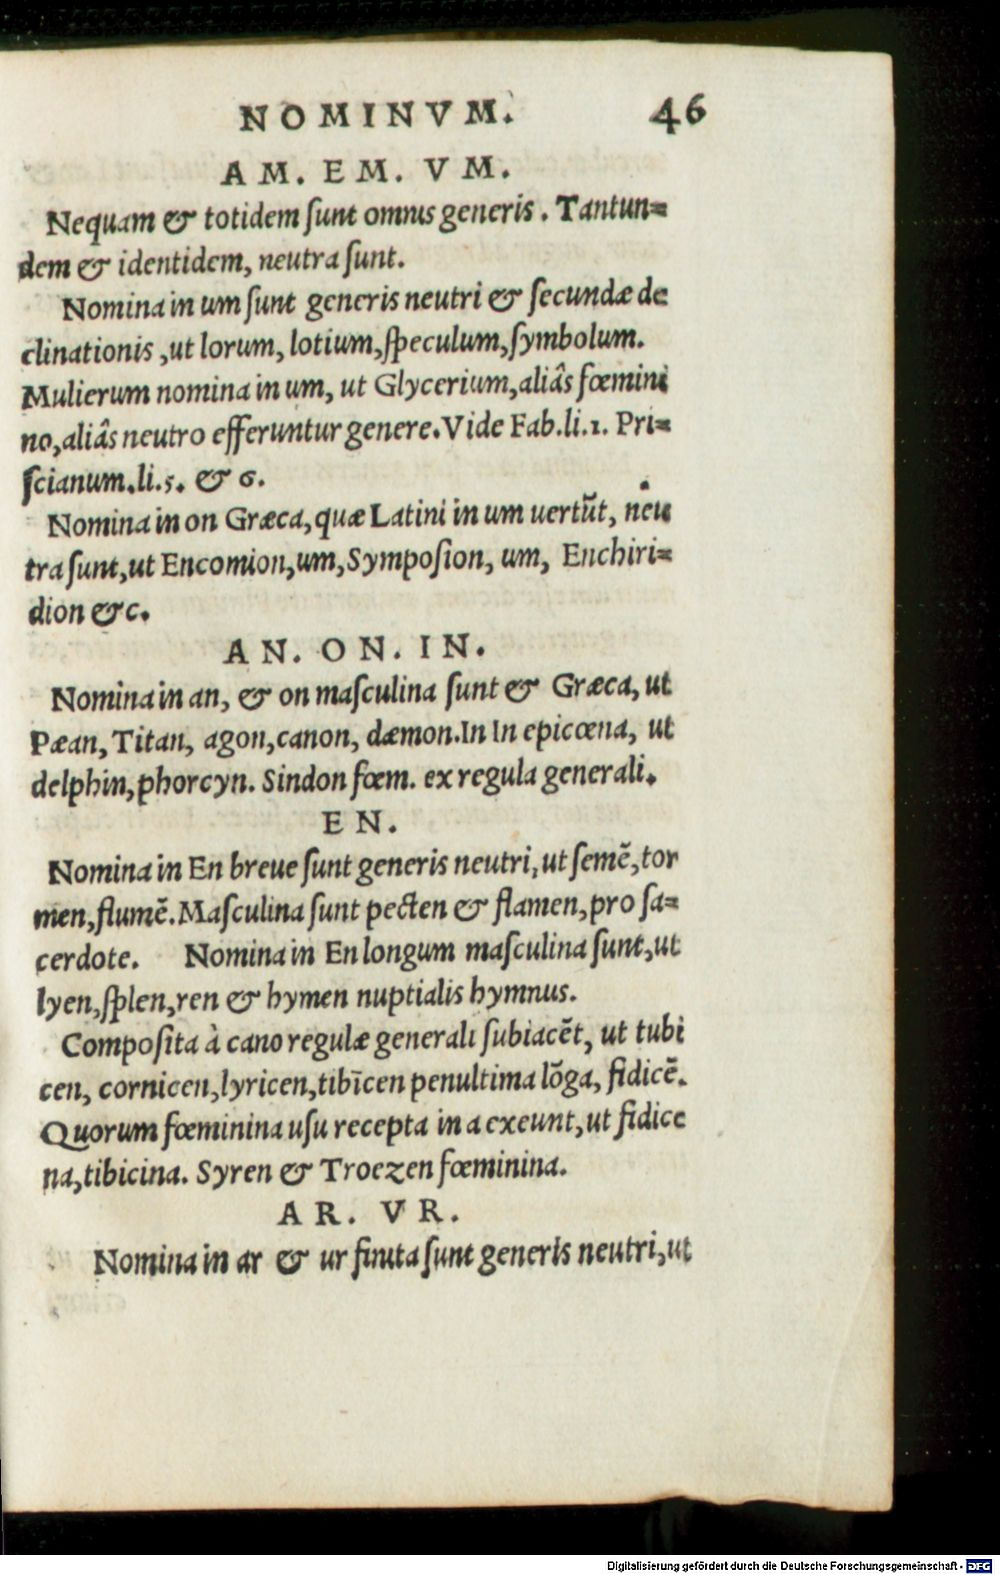 NOMINVM. 46
AM. EM. VM.
Nequam & totidem ſunt omnis generis. Tantun=
dem & identidem, neutra ſunt.
Nomina in um ſunt generis neutri & ſecundæ de
clinationis, ut lorum, lotium, ſpeculum, ſymbolum.
Mulierum nomina in um, ut Glycerium, aliâs fœmini
no, aliâs neutro efferuntur genere. Vide Fab. li. 1. Pri=
ſcianum. li. 5. & 6.
Nomina in on Græca, quæ Latini in um uertũt, neu
tra ſunt, ut Encomion, um, Sympoſion, um, Enchiri=
dion &c.
AN. ON. IN.
Nomina in an, & on maſculina ſunt & Græca, ut
Pæan, Titan, agon, canon, dæmon. In In epicœna, ut
delphin, phorcyn. Sindon fœm. ex regula generali.
EN.
Nomina in En breue ſunt generis neutri, ut ſemẽ, tor
men, flumẽ. Maſculina ſunt pecten & flamen, pro ſa=
cerdote. Nomina in En longum maſculina ſunt, ut
lyen, ſplen, ren & hymen nuptialis hymnus.
Compoſita à cano regulæ generali ſubiacẽt, ut tubi
cen, cornicen, lyricen, tibīcen penultima lõga, fidicẽ.
Quorum fœminina uſu recepta in a exeunt, ut fidice
na, tibicina. Syren & Troezen fœminina.
AR. VR.
Nomina in ar & ur finita ſunt generis neutri, ut
Digitalisierung gefördert durch die Deutsche Forschungsgemeinschaft - DFG